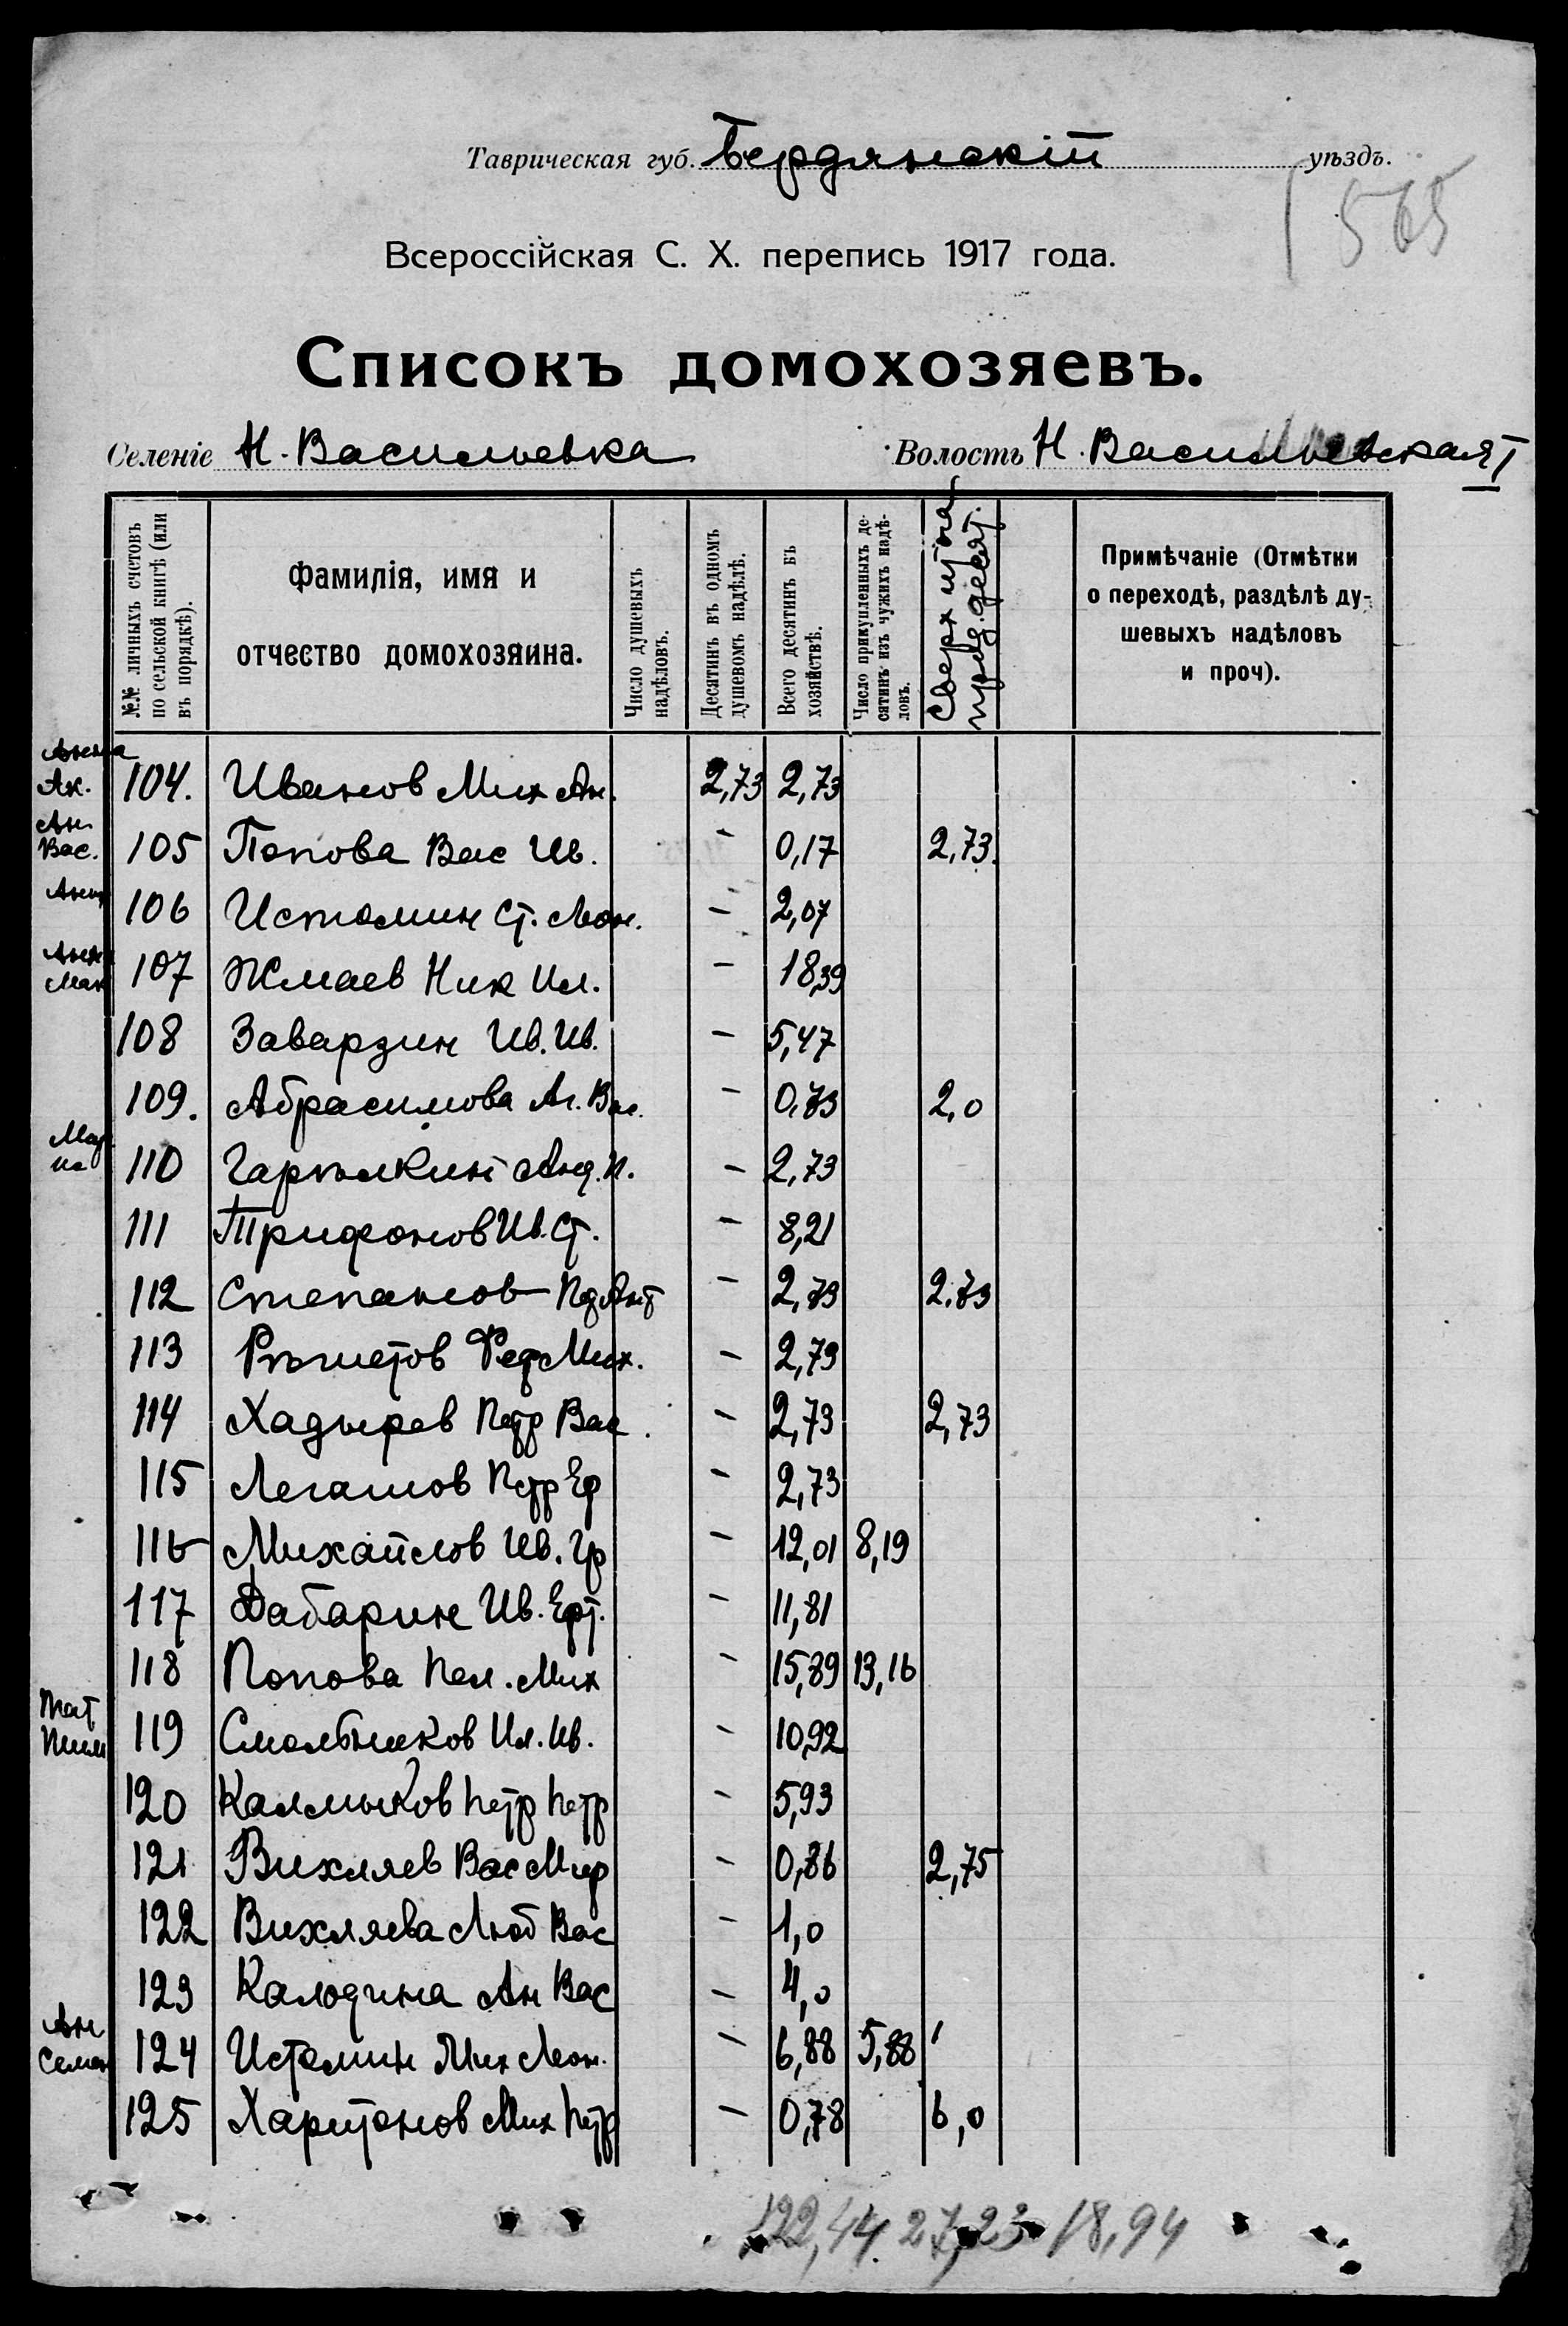 Таврическая губ. Бердянскій уѣздъ.
565
Всероссійская С. Х. перепись 1917 года.
Списокъ домохозяевъ.
Селеніе Н. Васильевка Волость Н. Васильевская I
№№ личныхъ счетовъ по сельской книгѣ (или въ порядкѣ).
Фамилія, имя и отчество домохозяина.
Число душевыхъ надѣловъ.
Десятинъ въ одномъ душевомъ надѣлѣ.
Всего десятинъ въ хозяйствѣ.
Число прикупленныхъ десятинъ изъ чужихъ надѣловъ.
Сверх десят.
Примѣчаніе (Отмѣтки о переходѣ, раздѣлѣ душевыхъ надѣловъ и проч).
Анна Ак. 104. Иванов Мих Ан. 2,73 2,73
Ан. Вас. 105 Попова Вас Ив. – 0,17 2,73
106 Истомин Ст. Леон. – 2,07
107 Жмаев Ник Ил. – 18,39
108 Заварзин Ив. Ив. – 5,47
109. Абрасимова Аг. Вас. – 0,73 2,0
110 Гарькин Анд. П. – 2,73
111 Трифонов Ив. Ст. – 8,21
112 Степанов – 2,73 2.73
113 Рѣшетов Фед Мих. – 2,73
114 Хадырев Петр Вас. – 2,73 2,73
115 Легашов Петр Еф – 2,73
116 Михайлов Ив. Гр – 12,01 8,19
117 Дабарин Ив. – 11,81
118 Попова Пел. Мих – 15,89 13,16
119 Смольников Ил. Ив. – 10,92
120 Калмыков Петр Петр – 5,93
121 Вихляев Вас Мир – 0,86 2,75
122 Вихляева Люб Вас – 1,0
123 Калодина Ан Вас – 4,0
Ан Семен 124 Истомин Мих Леон. – 6,88 5,88
125 Харитонов Мих Петр – 0,78 6,0
122,44. 27,23 18,94